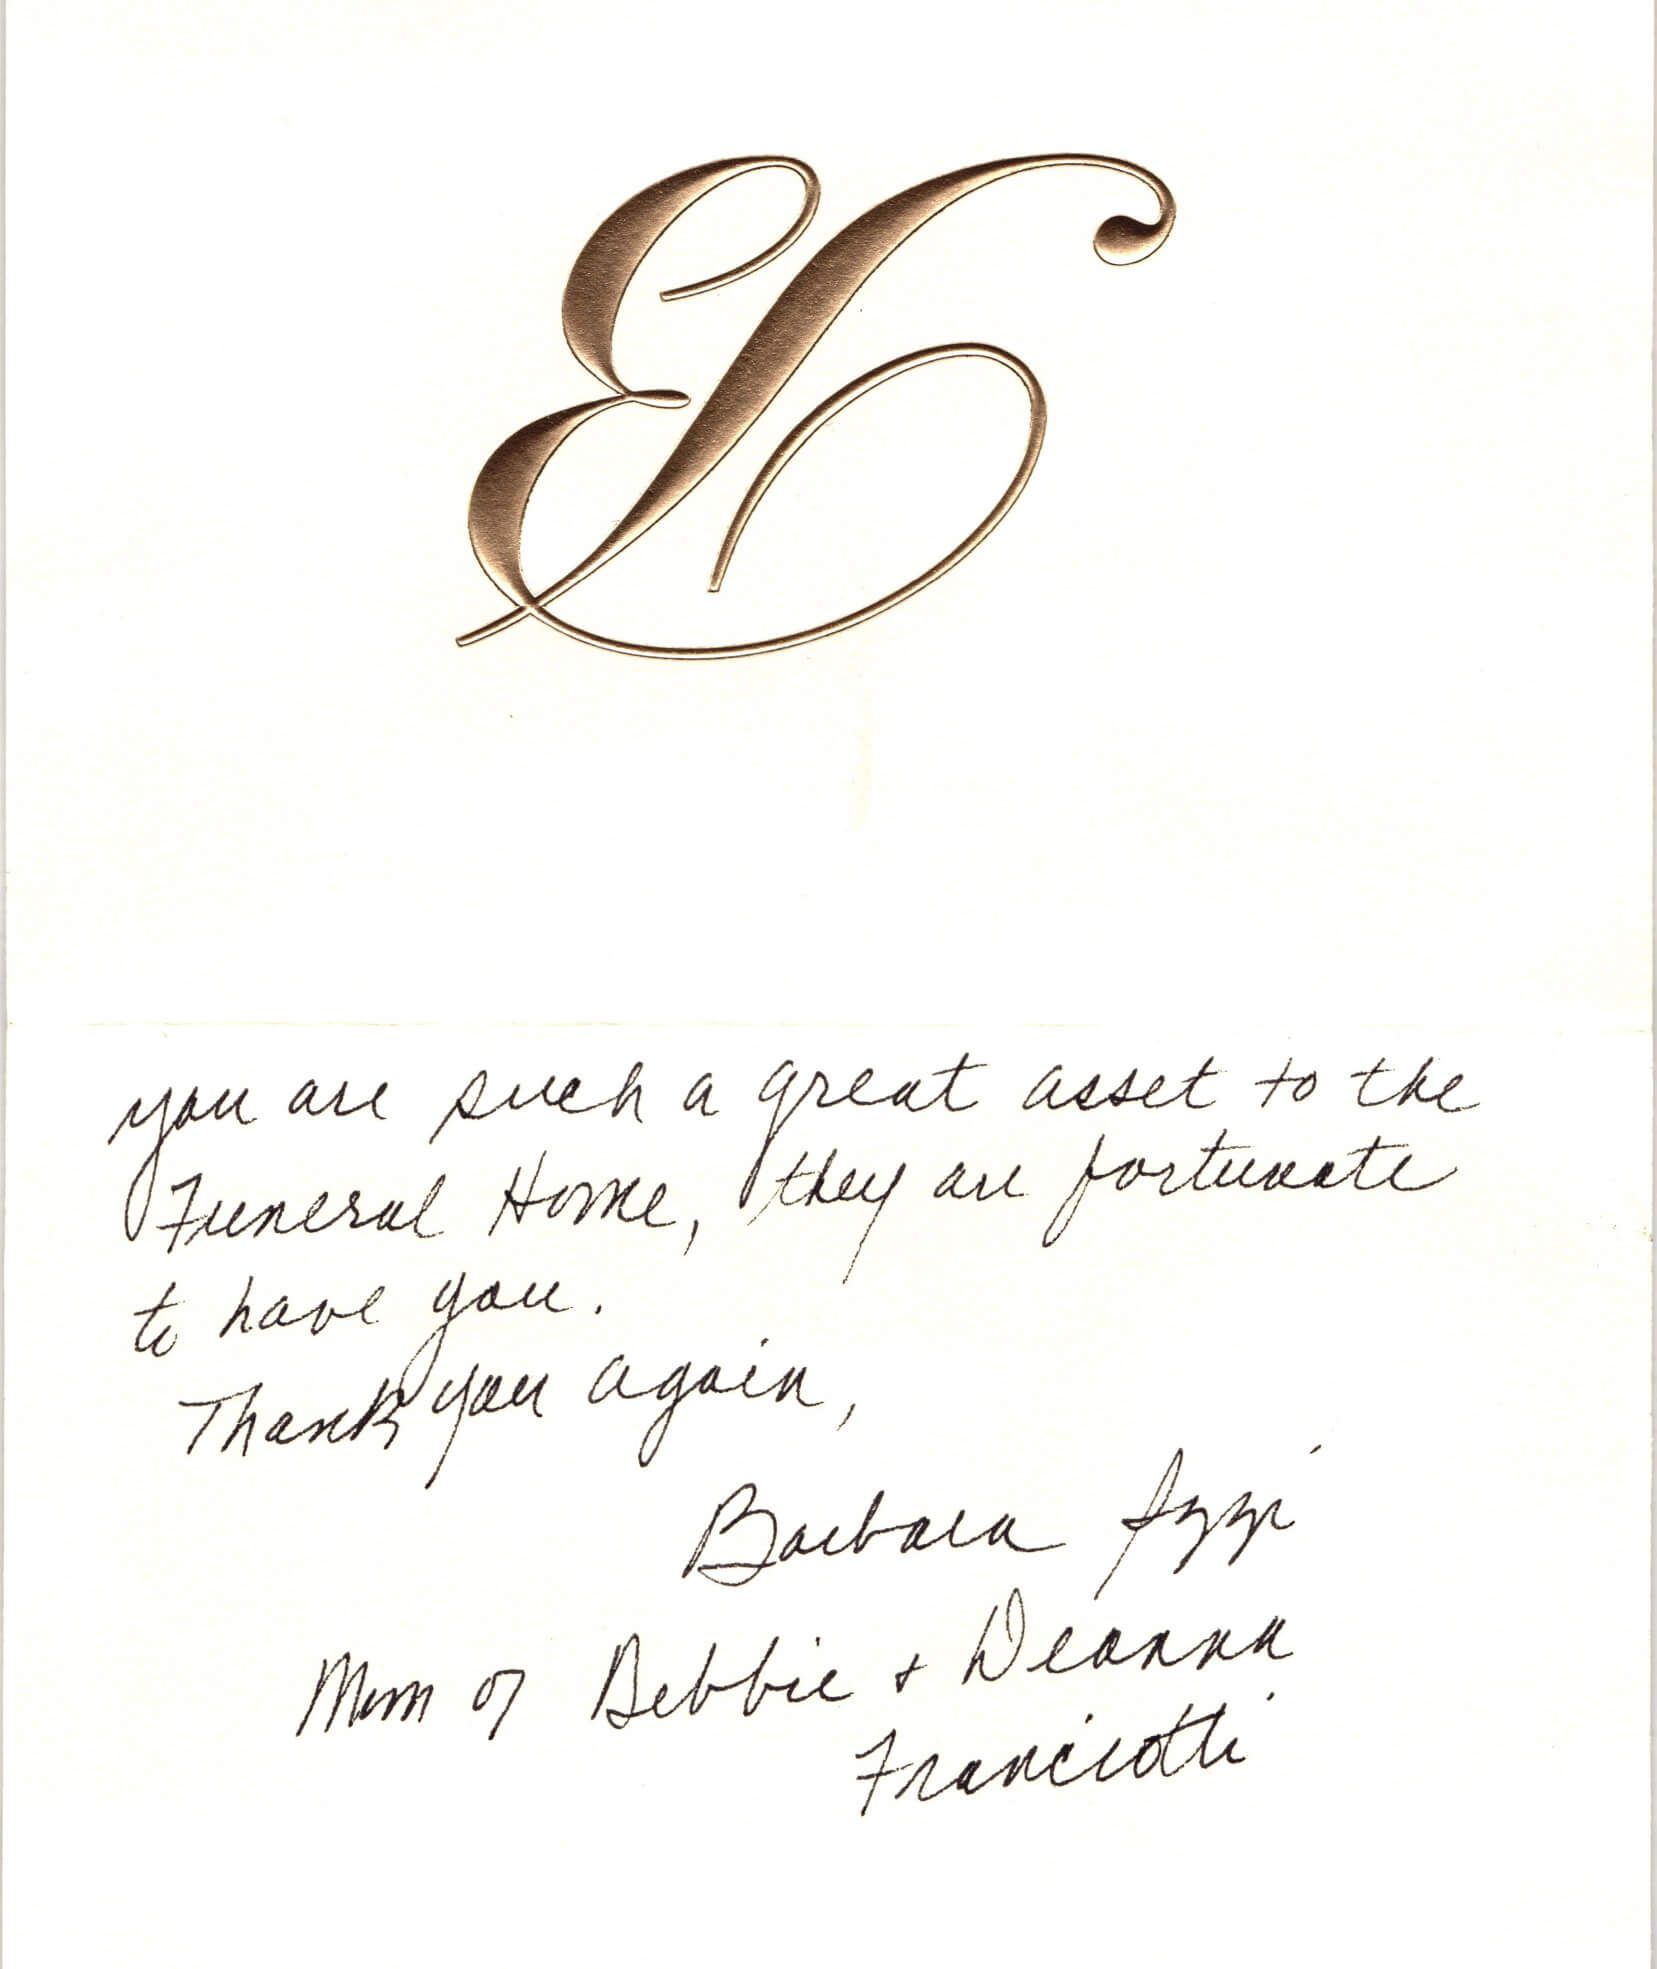 you are such a great asset to the
Funeral Home, they are fortunate
to have you.
Thank you again,
Barbara Izzi
Mom of Debbie & Deanna
Franciotti